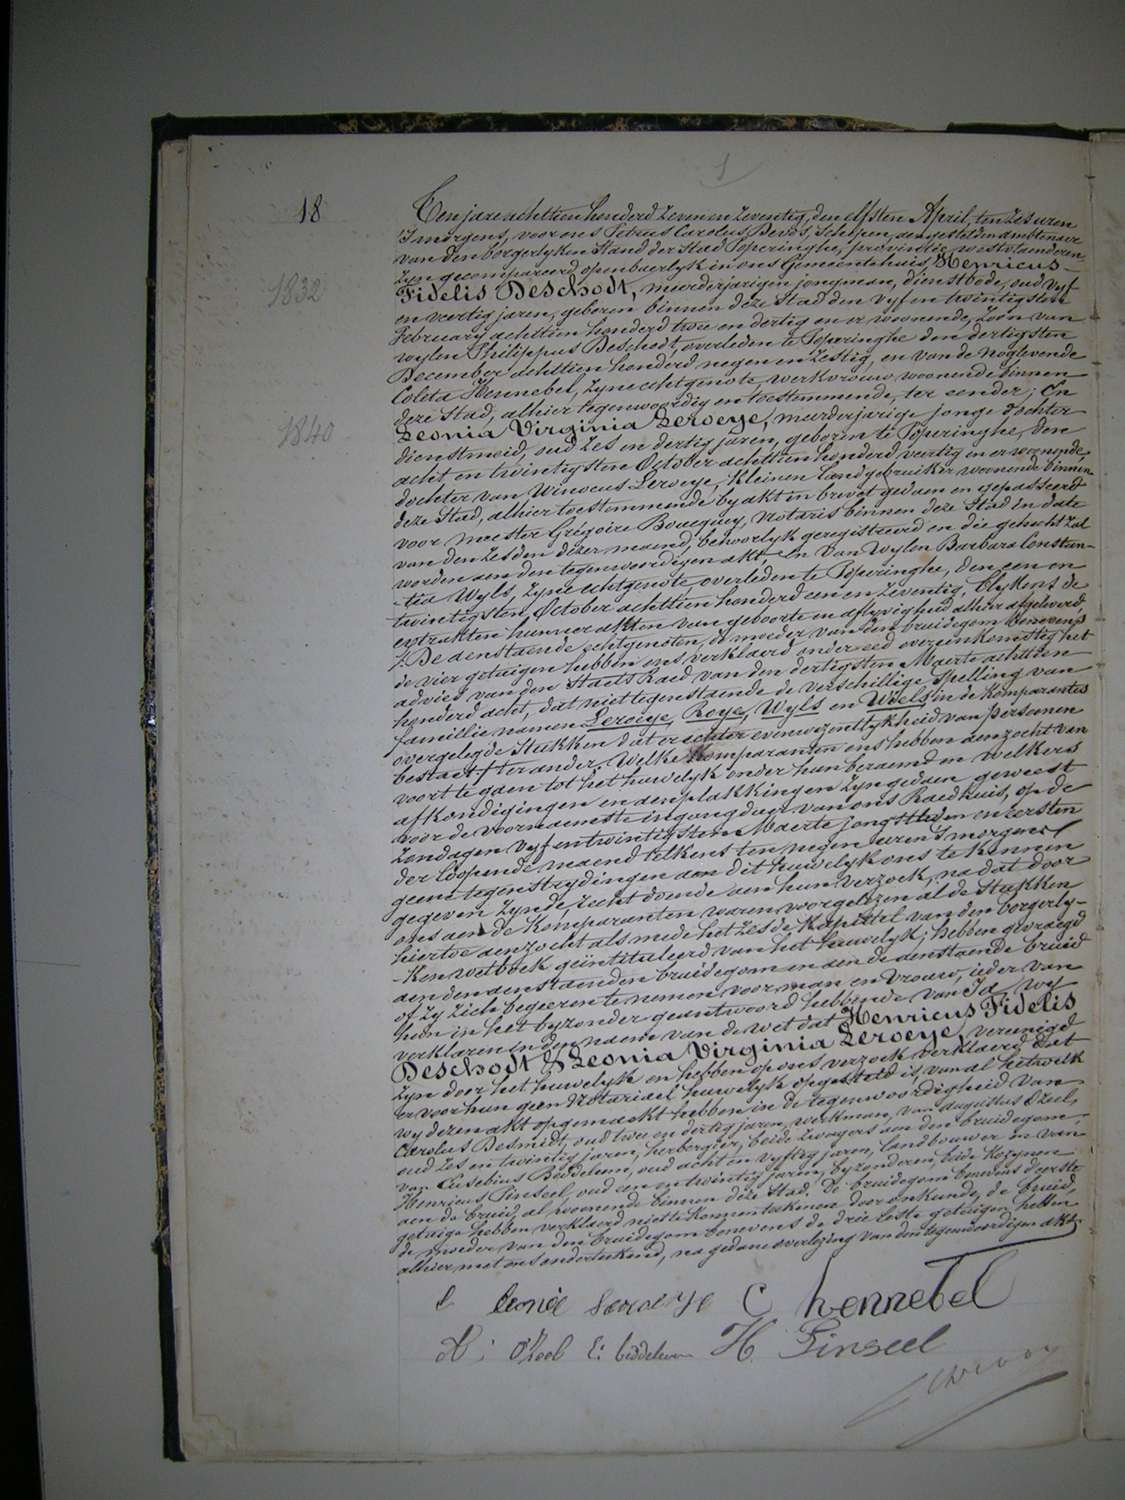 1
18
1832
1840
Ten jare achttien honderd zeven en zeventig, den elfsten April, ten zes uren
'S morgens, voor ons Petrus Carolus Devos, Schepen, aengestelden ambtenaer
van den borgerlyken Stand der Stad Poperinghe, provintie westvlaenderen,
zyn gecompareerd openbaerlyk in ons Gemeentehuis, Henricus-
Fidelis Deschodt, meerderjarigen jongman, dienstbode, oud vyf
en veertig jaren, geboren binnen deze Stad den vyf en twintigsten
February achttien honderd twee en dertig en er woonende, zoon van
wylen Philippus Deschodt, overleden te Poperinghe den dertigsten
December achttien honderd negen en zestig, en van de noglevende
Coleta Hennebel, zyne echtgenote, werkvrouw woonende binnen
deze Stad, alhier tegenwoordig en toestemmende, ter eender; En
Leonia Virginia Leroeye, meerderjarige jonge dochter
dienstmeid, oud zes en dertig jaren, geboren te Poperinghe, den
acht en twintigsten October achttien honderd veertig en er woonende,
dochter van Winocus Leroeye, kleinen landgebruiker woonende binnen
deze Stad, alhier toestemmende by akt in brevet gedaen en gepasseerd
voor meester Grégoire Boucquey, Notaris binnen deze Stad in date
van den zesden dezer maend, behoorlyk geregistreerd en die gehecht zal
worden aen den tegenwoordigen akt, en van wylen Barbara Constan-
-tia Wyls, zyne echtgenote, overleden te Poperinghe, den een en
twintigsten October achttien honderd een en zeventig, blykens de
extrakten hunner akten van geboorte en aflyvigheid alhier afgeleverd,
De aenstaende echtgenoten, de moeder van den bruidegom benevens
de vier getuigen hebben ons verklaerd onder eed overeenkomstig het
advies van den Staets Raed van den dertigsten Maerte achttien
honderd acht, dat niettegenstaende de verschillige spelling van
famillie namen Leroeye, Roye, Wyls en Wiels in de komparantes
overgelegde Stukken dat er echter evenwezentlykheid van personen
bestaet ter ander. Welke komparanten ons hebben aenzocht van
voort te gaen tot het huwelyk onder hun beraemd en welkers
afkondigingen en aenplakkingen zyn gedaen geweest
voor de voornaemste ingangdeur van ons Raedhuis, op de
zondagen vyf en twintigsten Maerte jongstleden en eersten
der loopende maend telkens ten negen uren 's morgens
geene tegenstrydingen aen dit huwelyk ons te kennen
gegeven zynde, recht doende aen hun verzoek, na dat door
ons aen de komparanten waren voorgelezen al de Stukken
hiertoe aenzocht als mede het zesde kapittel van den borgerly-
-ken wetboek geïntituleerd van het huwelyk; hebben gevraegd
aen den aenstaenden bruidegom en aen de aenstaende bruid
of zy zich begeeren te nemen voor man en vrouw, ieder van
hun in het byzonder geantwoord hebbende van Ja, wy
verklaren in den naem van de wet dat Henricus Fidelis
Deschodt & Leonia Virginia Leroeye, vereenigd
zyn door het huwelyk en hebben op ons verzoek verklaerd dat
er voor hun geen Notariael huwelyk opgesteld is, van al hetwelk
wy dezen akt opgemaekt hebben in de tegenwoordigheid van
Carolus Desmidt, oud twee en dertig jaren, werkman, van Augustus D'zeel,
oud zes en twintig jaren, herbergier, beide zwagers aen den bruidegom,
van Eusebius Beddeleem, oud acht en vyftig jaren, landbouwer en van
Henricus Pinseel, oud een en twintig jaren, byzonderen, beide kozynen
aen de bruid, al woonende binnen deze Stad. De bruidegom benevens d'eerste
getuige hebben verklaerd niet te konnen teekenen door onkunde, de bruid,
de moeder van den bruidegom benevens de drie leste getuigen hebben
alhier met ons onderteekend, na gedane overlezing van den tegenwoordigen akt.
leonie Leroeye C hennebel
H. Pinseel